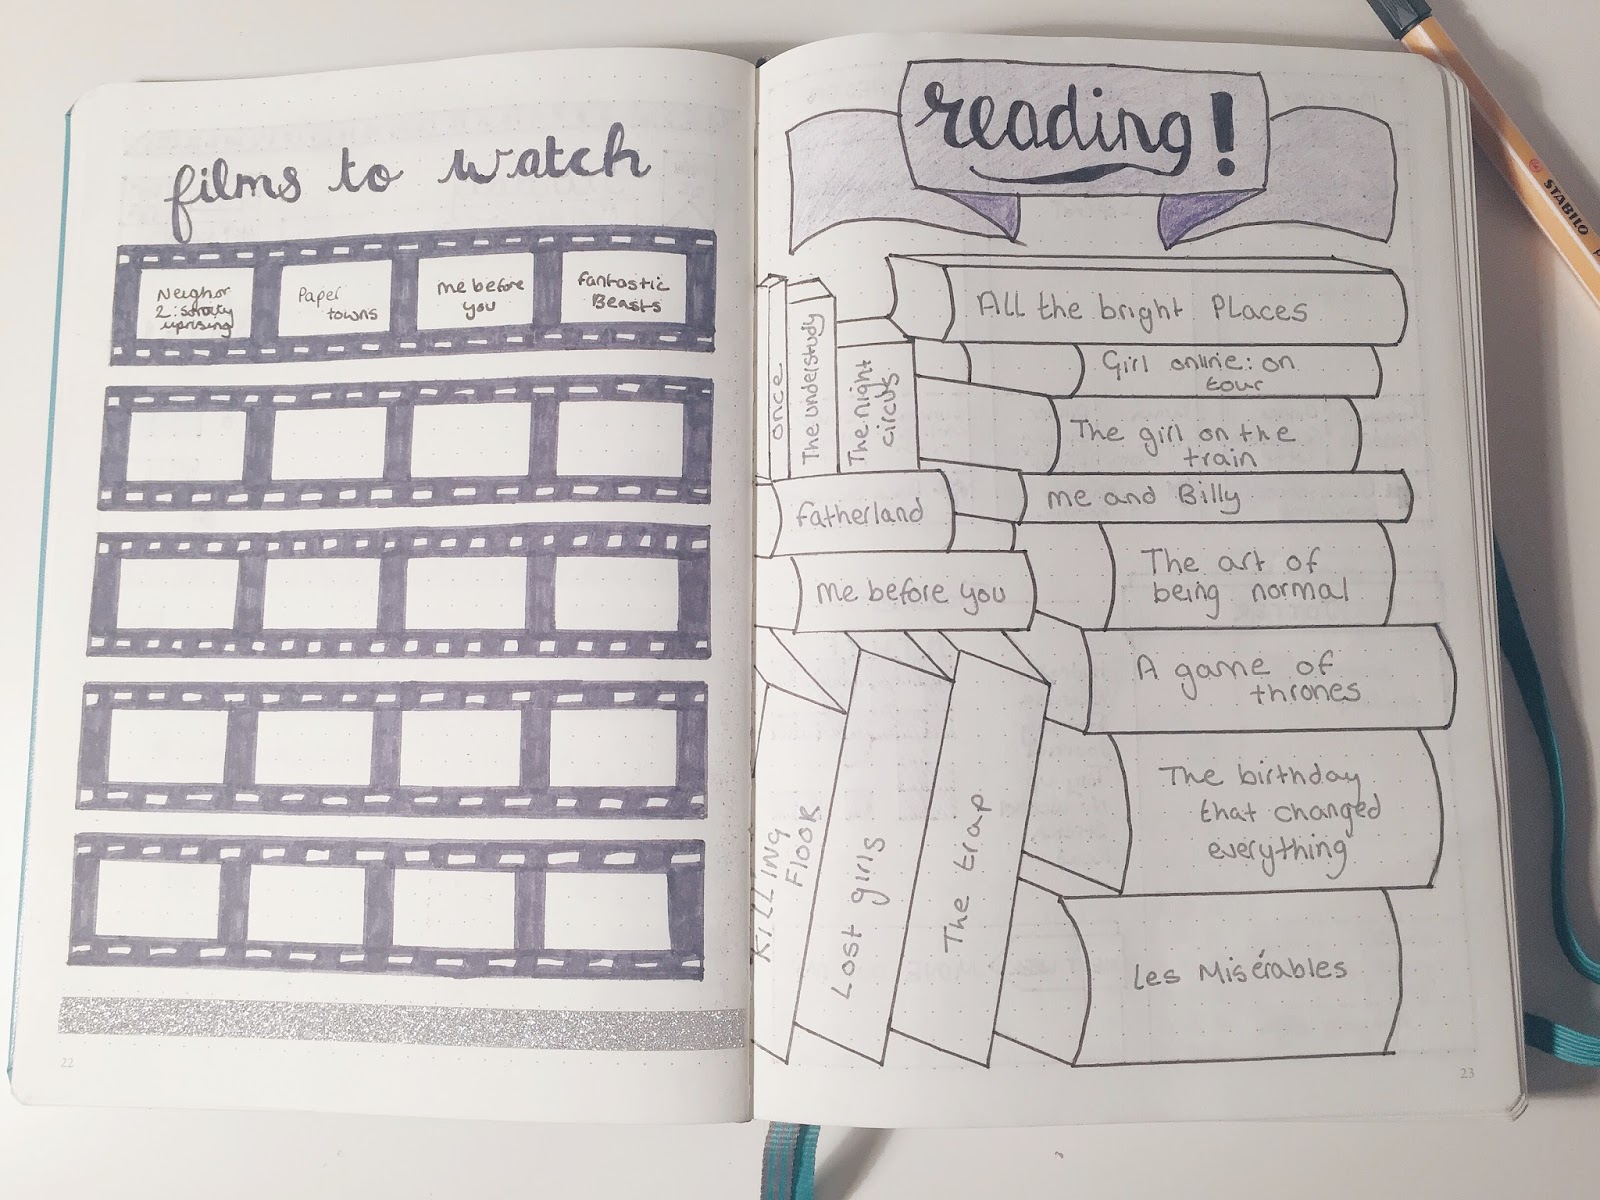 films to watch
Neighor
2: sorority
uprising
Paper
towns
me before
you
fantastic
Beasts
22
reading!
All the bright Places
Girl online: on
tour
The girl on the
train
me and Billy
The art of
being normal
A game of
thrones
The birthday
that changed
everything
Les Misérables
once
The understudy
The night
circus
fatherland
me before you
KILLING
FLOOR
Lost girls
The trap
23
STABILO